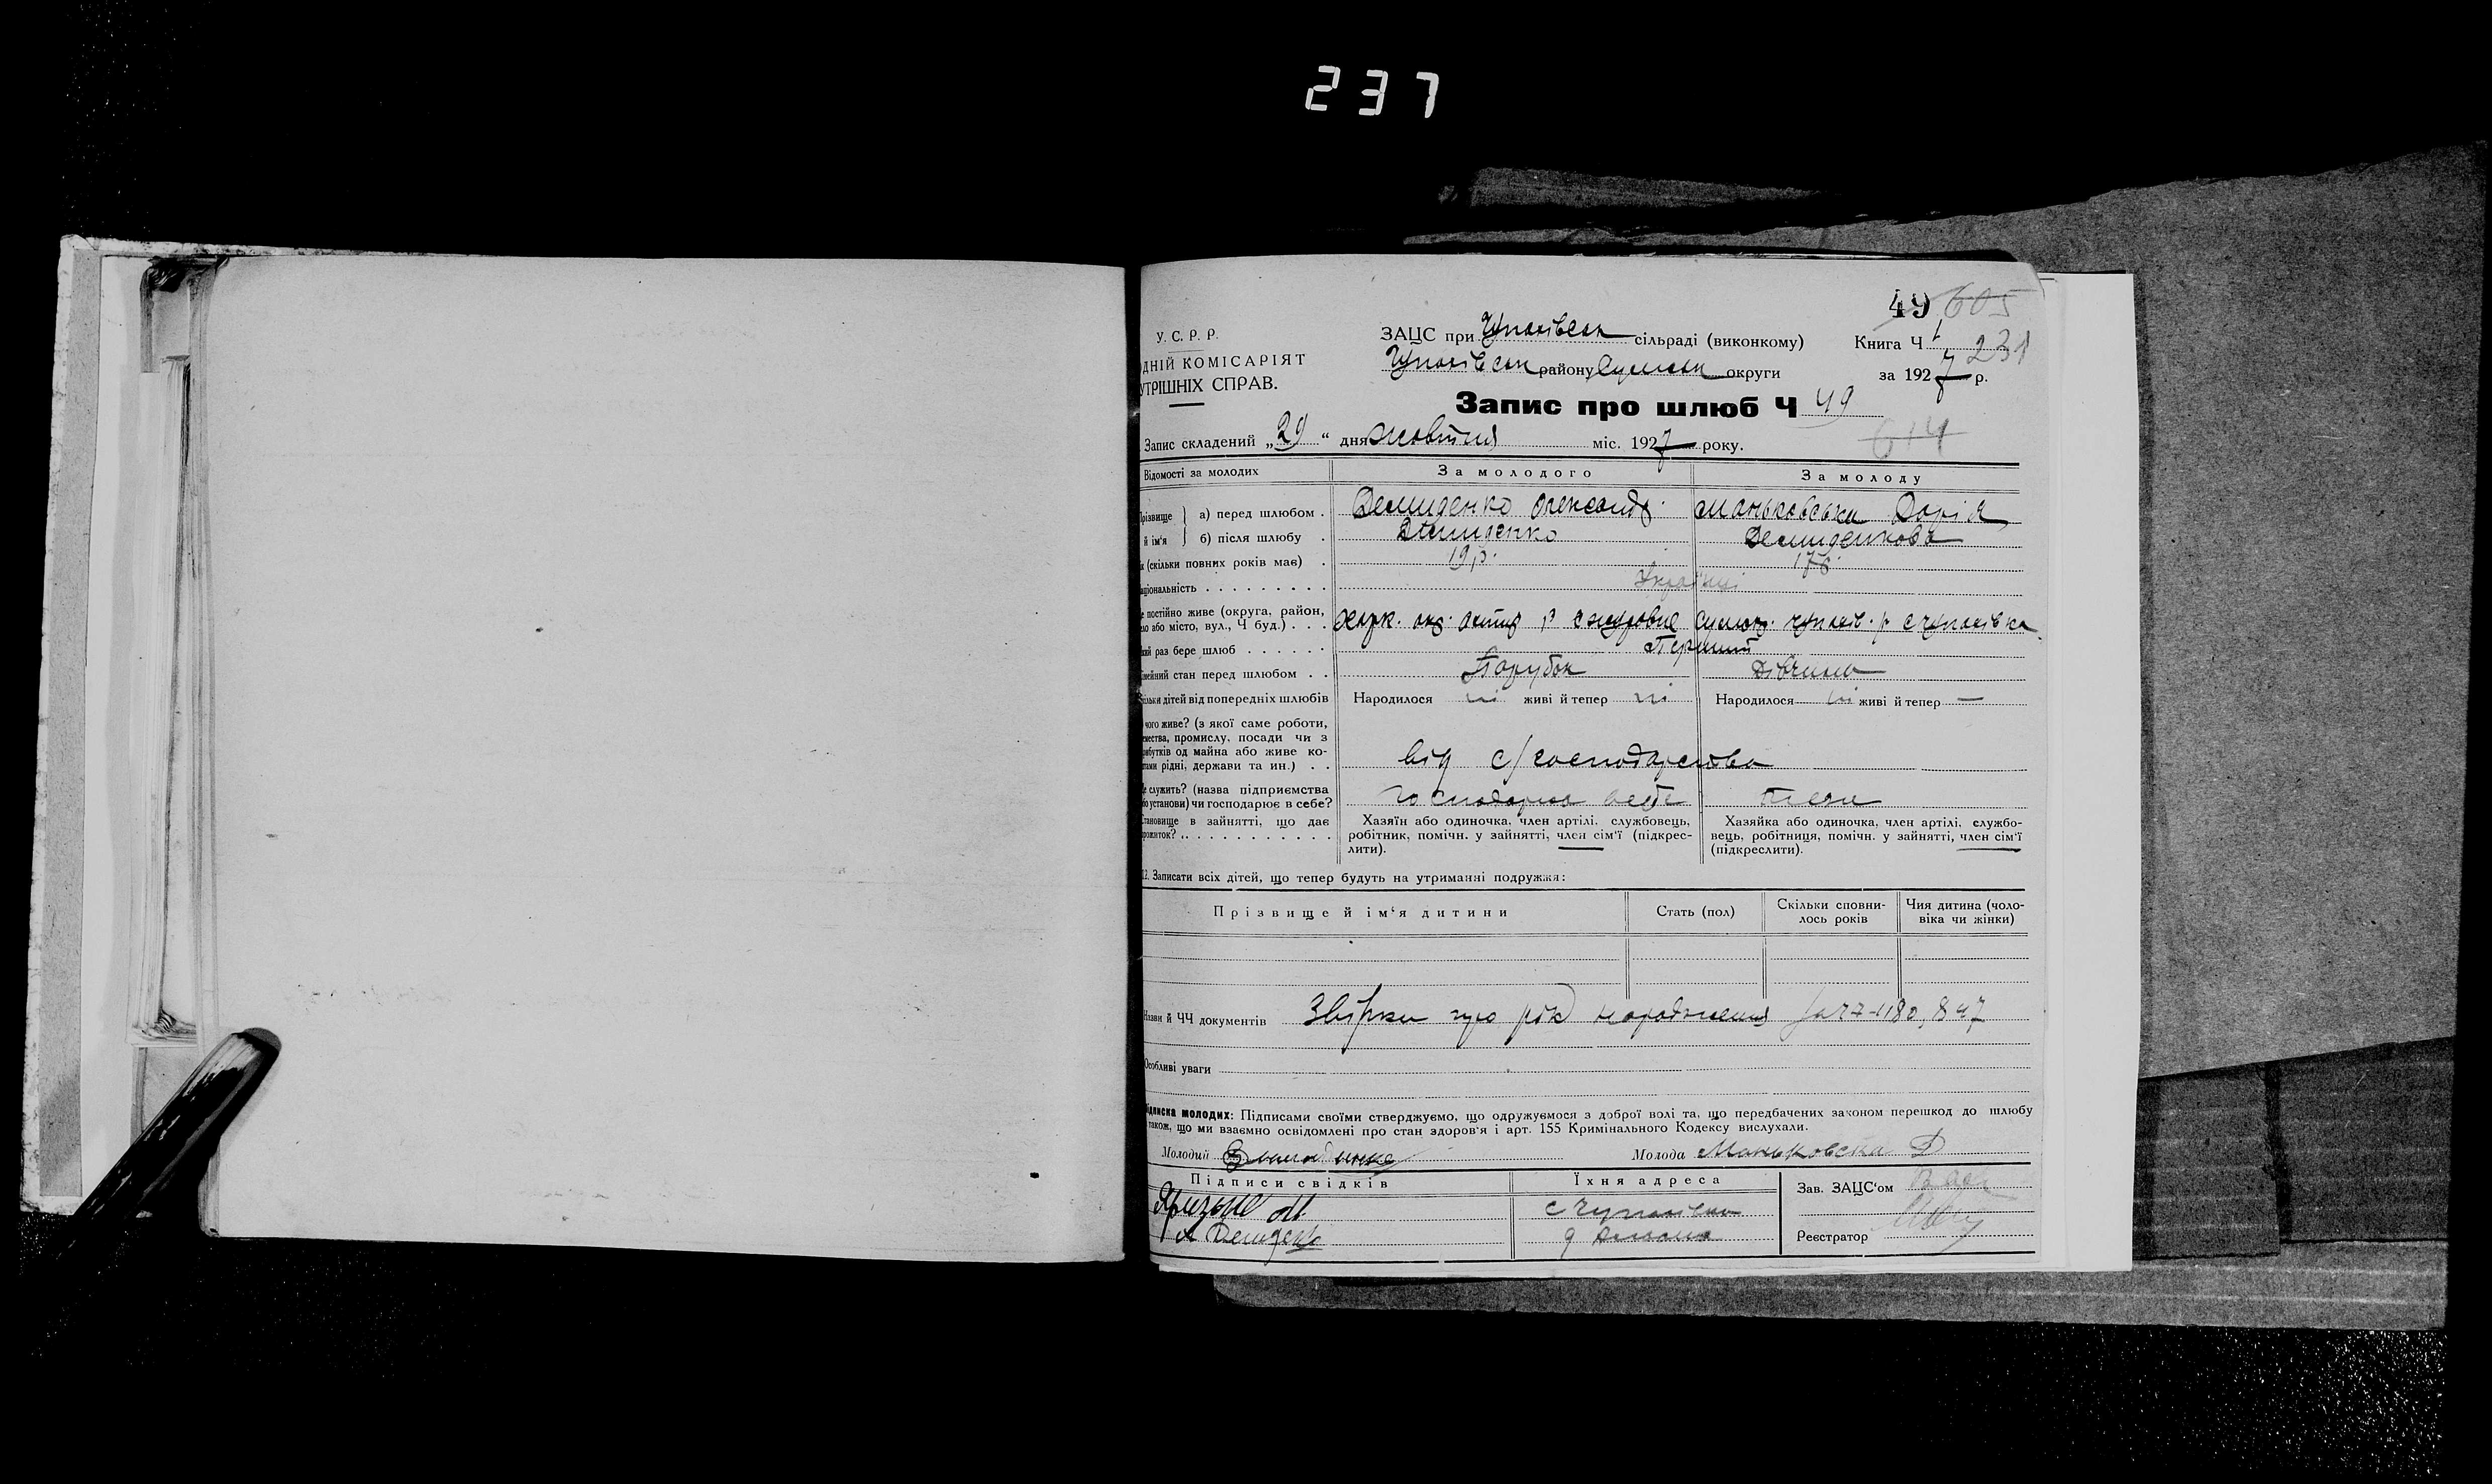 237
49 605
У. С. Р. Р.
ДНІЙ КОМІСАРІЯТ
УТРІШНІХ СПРАВ.
ЗАЦС при Чупахівськ сільраді (виконкому)
Книга Ч 1
231
Чупахівськ району Сумськ округи
за 1927 р.
Запис про шлюб Ч 49
Запис складений „29“ дня жовтня міс. 1927 року.
614
Відомості за молодих За молодого За молоду
різвище й ім'я а) перед шлюбом . Демиденко Олександр Маньковська Дарія
б) після шлюбу . Демиденко Демиденкова
к (скільки повних років має) . 19 р. 17 р.
аціональність Українці
е постійно живе (округа, район,
ло або місто, вул., Ч буд.) . . . Харк. окр. р. с. Сумськ. Чупахів. р. с. Чупахівка
кий раз бере шлюб Перший
імейний стан перед шлюбом . . Парубок Дівчина
ільки дітей від попередніх шлюбів Народилося ні живі й тепер ні Народилося ні живі й тепер —
чого живе? (з якої саме роботи,
мества, промислу, посади чи з
рибутків од майна або живе ко-
тами рідні, держави та ин.) . . від с/господарства
е служить? (назва підприємства
бо установи) чи господарює в себе? господарює в себе теж
тановище в зайнятті, що дає
рожиток?
Хазяїн або одиночка, член артілі, службовець,
робітник, помічн. у зайнятті, член сім'ї (підкрес-
лити).
Хазяйка або одиночка, член артілі, службо-
вець, робітниця, помічн. у зайнятті, член сім'ї
(підкреслити).
12. Записати всіх дітей, що тепер будуть на утриманні подружжя:
Прізвище й ім'я дитини Стать (пол) Скільки сповни-
лось років Чия дитина (чоло-
віка чи жінки)
Назви й ЧЧ документів про рік народження 1180, 847
Особливі уваги
ідписка молодих: Підписами своїми стверджуємо, що одружуємося з доброї волі та, що передбачених законом перешкод до шлюбу
також, що ми взаємно освідомлені про стан здоров'я і арт. 155 Кримінального Кодексу вислухали.
Молодий Молода Маньковска Д
Підписи свідків Їхня адреса Зав. ЗАЦС'ом
М. с Чупахівка
А Демиденко Реєстратор